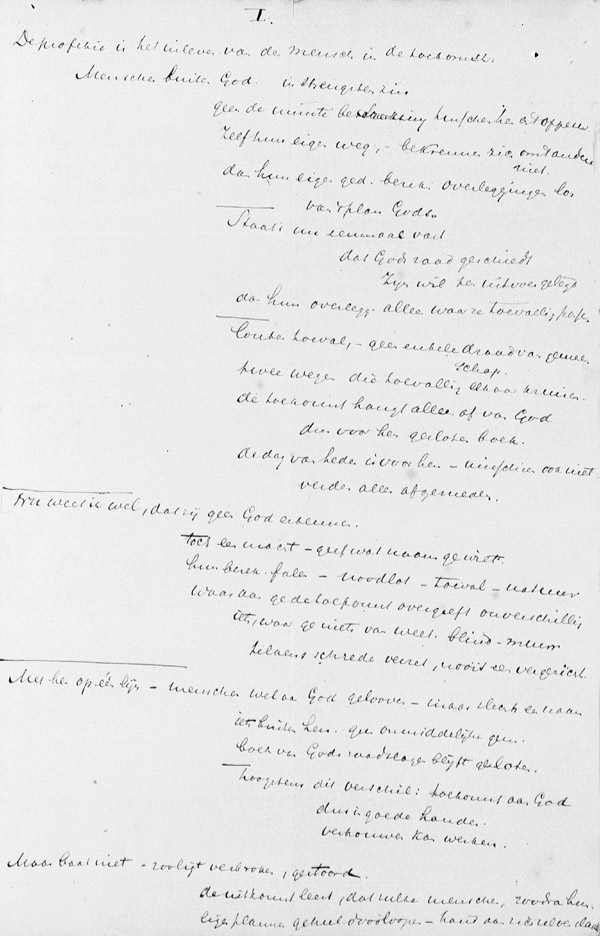 I.
De profetie is het inleven van de mensch in de toekomst.
Menschen buiten God. in strengsten zin
geen de minste berekening
Zelf hun eigen weg, – bekreunen zich om d'anderen
niet.
dan hun eigen ged. berek. overleggingen los
van 't plan Gods.
Staat nu eenmaal vast
dat Gods raad geschiedt
Zijn wil ten uitvoer gelegd
dan hun overlegg. alleen waar ze toevallig
louter toeval, – geen enkele draad van gemeen
schap.
twee wegen die toevallig elkaar kruisen.
de toekomst hangt alleen af van God
dus voor hen gesloten boek.
de dag van heden is voor hen – misschien ook niet
verder alles afgesneden.
Nu weet ik wel, dat zij geen God erkennen.
toch een macht – geef wat naam ge wilt.
hun berek. falen – noodlot – toeval – natuur
waaraan ge de toekomst overgeeft onverschillig
iets, waar ge niets van weet. blind – muur
telkens schrede verzet, nooit een vergezicht.
Met hen op één lijn – menschen wel aan God gelooven – maar slechts een naam
iets buiten hen. geen onmiddelijke gem.
boek van Gods raadslagen blijft gesloten.
hoogstens dit verschil: toekomst aan God
dus in goede handen.
vertrouwen kan werken.
Maar baat niet – zoo ligt verbroken, gestoord.
de uitkomst leert, dat zulke menschen, zoodra hun
eigen plannen geheel doorloopen – hand aan zichzelve slaan